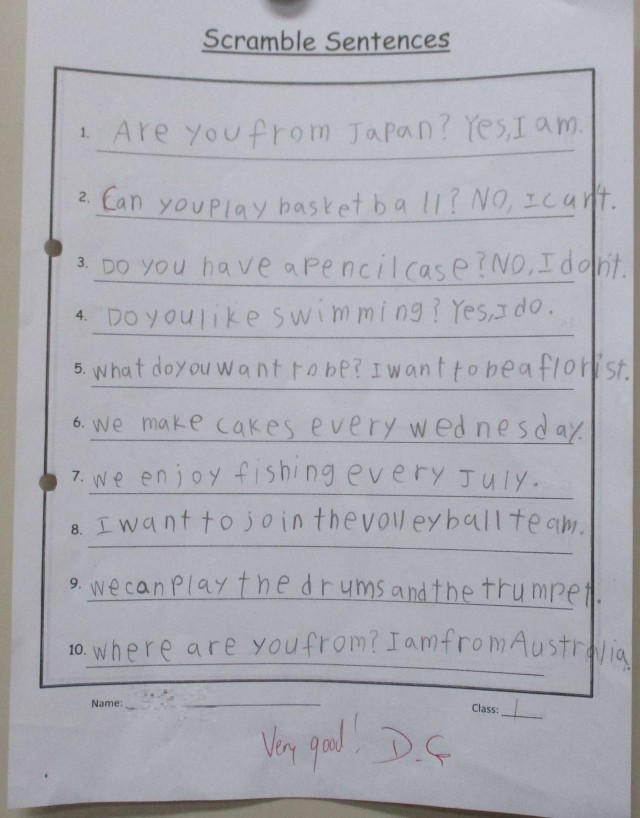 Scramble Sentences
1. Are you from Japan? Yes, I am.
2. Can you play basketball? NO, I can't.
3. DO you have a pencil case? NO, I don't.
4. Do you like swimming? Yes, I do.
5. what do you want to be? I want to be a florist.
6. we make cakes every wednesday.
7. we enjoy fishing every July.
8. I want to join the volleyball team.
9. we can play the drums and the trumpet.
10. where are you from? I am from Australia.
Name: Class: 1
Very good! D.G